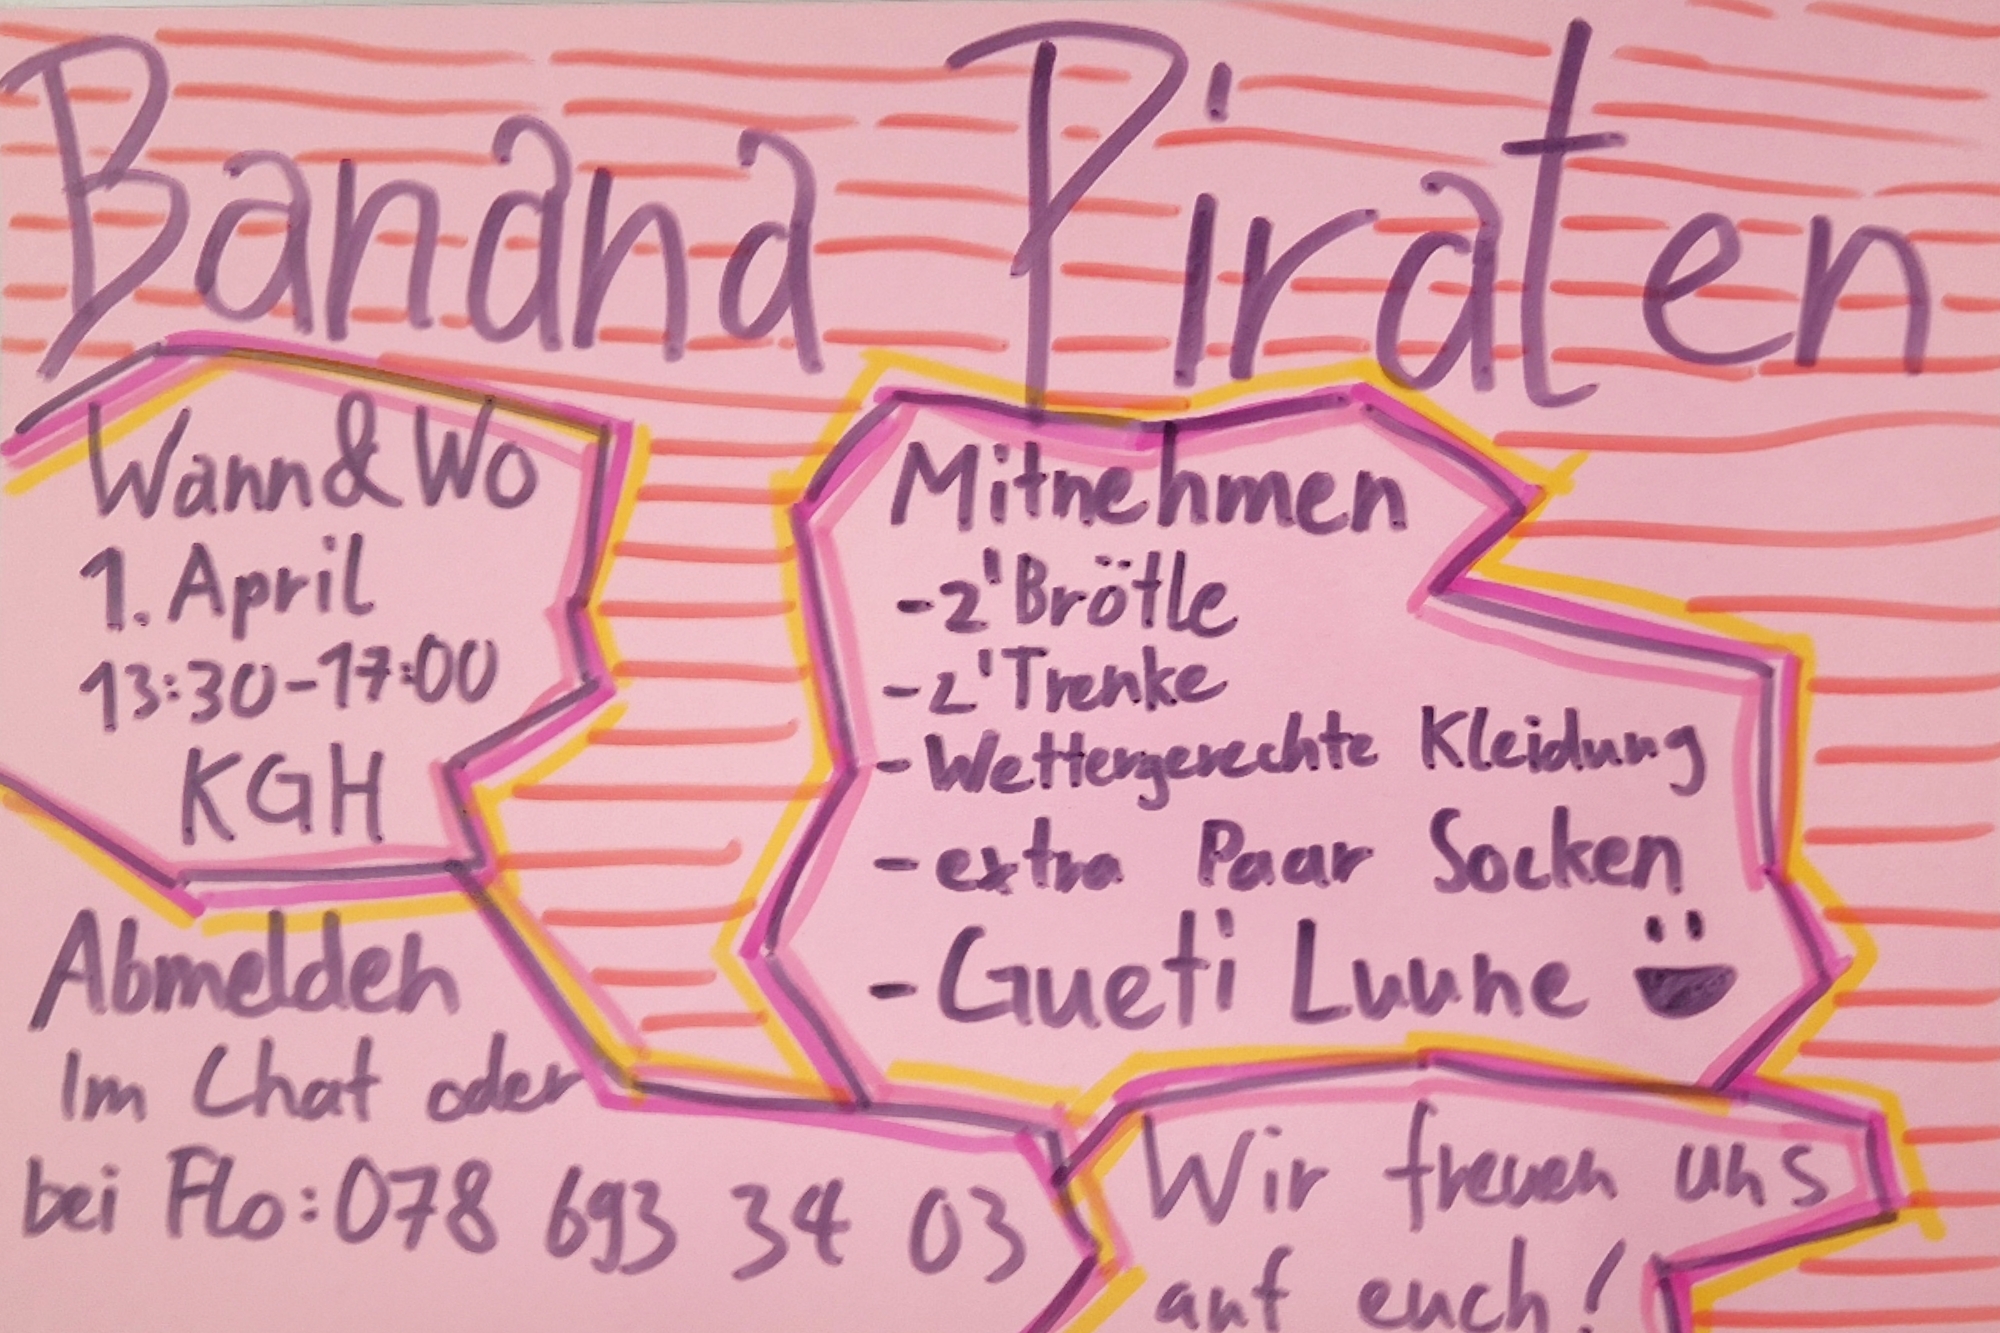 Banana Piraten
Wann & Wo
1. April
13:30-17:00
KGH
Mitnehmen
-2'Brötle
-2'Trenke
-Wettergerechte Kleidung
-extra Paar Socken
-Gueti Luune
Abmelden
Im Chat oder
bei Flo: 078 693 34 03
Wir freuen uns
auf euch!